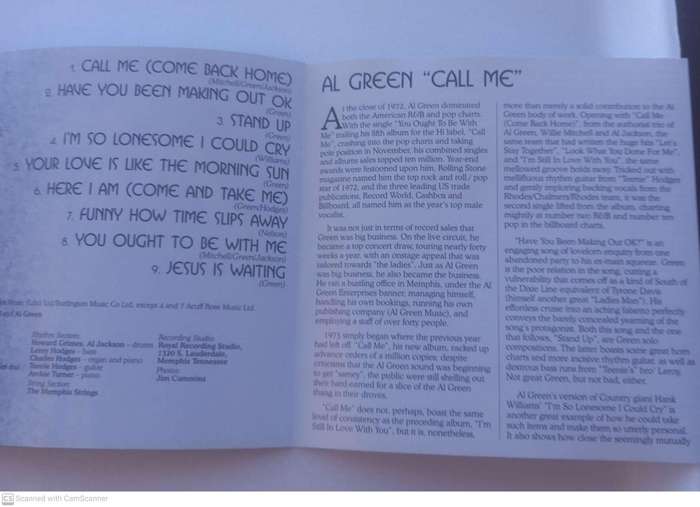 1. CALL ME (COME BACK HOME)
(Mitchell/Green/Jackson)
2. HAVE YOU BEEN MAKING OUT OK
(Green)
3. STAND UP
(Green)
4. I'M SO LONESOME I COULD CRY
(Williams)
5. YOUR LOVE IS LIKE THE MORNING SUN
(Green)
6. HERE I AM (COME AND TAKE ME)
(Green/Hodges)
7. FUNNY HOW TIME SLIPS AWAY
(Nelson)
8. YOU OUGHT TO BE WITH ME
(Mitchell/Green/Jackson)
9. JESUS IS WAITING
(Green)
Burlington Music Co Ltd, except 4 and 7 Acuff Rose Music Ltd.
Al Green
Rhythm Section:
Howard Grimes, Al Jackson - drums
Leroy Hodges - bass
Charles Hodges - organ and piano
Teenie Hodges - guitar
Archie Turner - piano
String Section:
The Memphis Strings
Recording Studio:
Royal Recording Studio,
1320 S. Lauderdale,
Memphis Tennessee
Photos:
Jim Cummins
AL GREEN "CALL ME"
At the close of 1972, Al Green dominated
both the American R&B and pop charts.
With the single "You Ought To Be With
Me" trailing his 8th album for the Hi label, "Call
Me", crashing into the pop charts and taking
pole position in November, his combined singles
and albums sales topped ten million. Year-end
awards were festooned upon him. Rolling Stone
magazine named him the top rock and roll / pop
star of 1972, and the three leading US trade
publications, Record World, Cashbox and
Billboard, all named him as the year's top male
vocalist.
It was not just in terms of record sales that
Green was big business. On the live circuit, he
became a top concert draw, touring nearly forty
weeks a year, with an onstage appeal that was
tailored towards "the ladies". Just as Al Green
was big business, he also became the business.
He ran a bustling office in Memphis, under the Al
Green Enterprises banner, managing himself,
handling his own bookings, running his own
publishing company (Al Green Music), and
employing a staff of over forty people.
1973 simply began where the previous year
had left off. "Call Me", his new album, racked up
advance orders of a million copies; despite
criticisms that the Al Green sound was beginning
to get "samey", the public were still shelling out
their hard earned for a slice of the Al Green
thang in their droves.
"Call Me" does not, perhaps, boast the same
level of consistency as the preceding album, "I'm
Still In Love With You", but it is, nonetheless,
more than merely a solid contribution to the Al
Green body of work. Opening with "Call Me
(Come Back Home)", from the authorial trio of
Al Green, Willie Mitchell and Al Jackson, the
same team that had written the huge hits "Let's
Stay Together", "Look What You Done For Me",
and "I'm Still In Love With You", the same
mellowed groove holds sway. Tricked out with
mellifluous rhythm guitar from "Teenie" Hodges
and gently enjoining backing vocals from the
Rhodes/Chalmers/Rhodes team, it was the
second single lifted from the album, charting
mightily at number two R&B and number ten
pop in the billboard charts.
"Have You Been Making Out OK?" is an
engaging song of lovelorn enquiry from one
abandoned party to his ex-main squeeze. Green
is the poor relation in the song, cutting a
vulnerability that comes off as a kind of South of
the Dixie Line equivalent of Tyrone Davis
(himself another great "Ladies Man"). His
effortless cruise into an aching falsetto perfectly
conveys the barely concealed yearning of the
song's protagonist. Both this song and the one
that follows, "Stand Up", are Green solo
compositions. The latter boasts some great horn
charts and more incisive rhythm guitar, as well as
dextrous bass runs from "Teenie's" bro' Leroy.
Not great Green, but not bad, either.
Al Green's version of Country giant Hank
Williams' "I'm So Lonesome I Could Cry" is
another great example of how he could take
such items and make them so utterly personal.
It also shows how close the seemingly mutually
CS Scanned with CamScanner